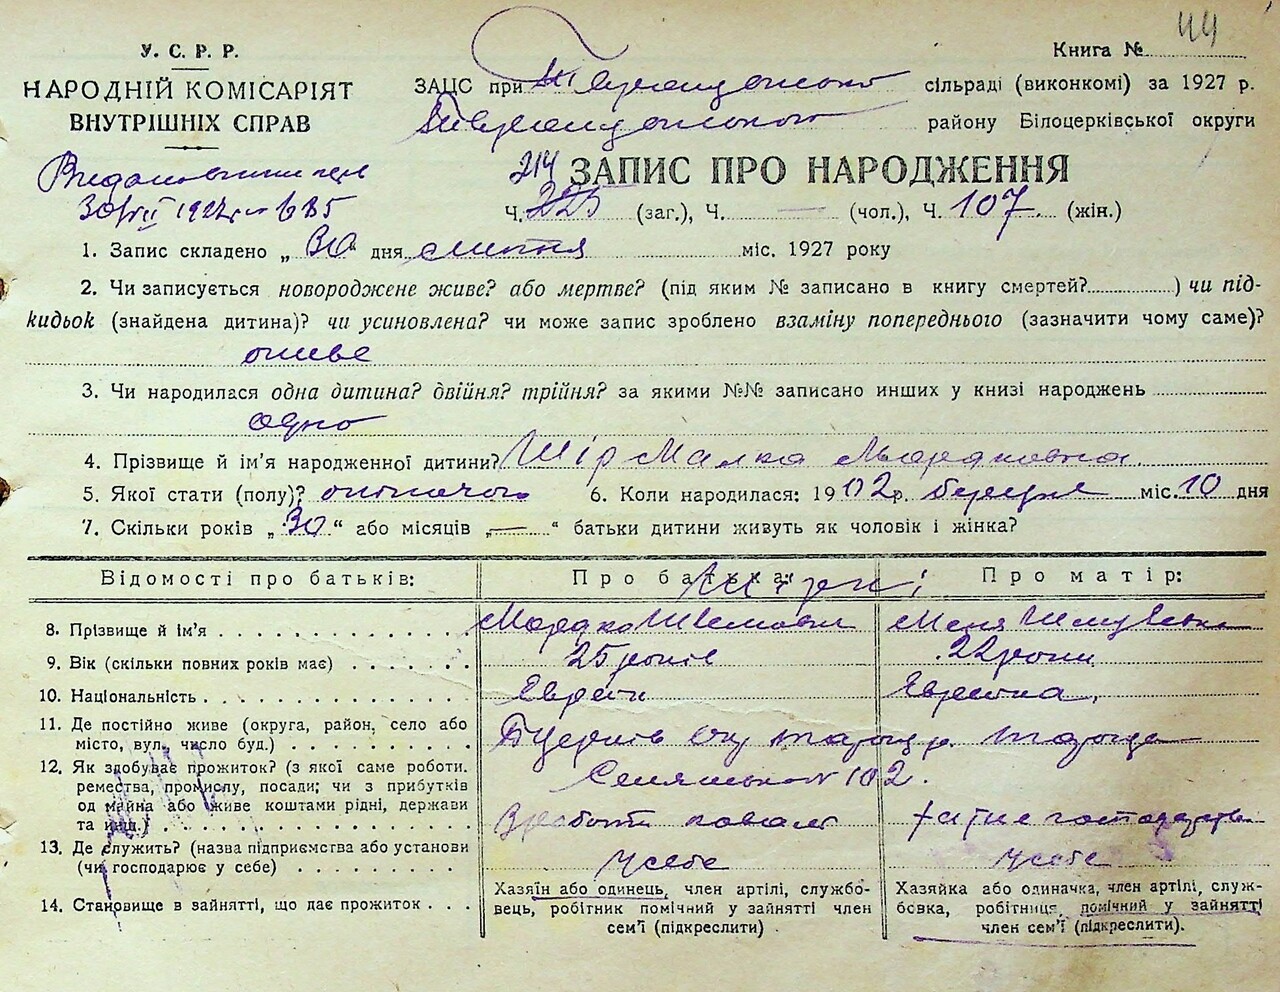 44
У. С. Р. Р.
НАРОДНІЙ КОМІСАРІЯТ
ВНУТРІШНІХ СПРАВ
Книга №
ЗАЦС при сільраді (виконкомі) за 1927 р.
району Білоцерківської округи
30/VII 1927 р. № 685
214
ЗАПИС ПРО НАРОДЖЕННЯ
Ч. 225 (заг.), Ч. — (чол.), Ч. 107 (жін.)
1. Запис складено „ 30 “ дня липня міс. 1927 року
2. Чи записується новороджене живе? або мертве? (під яким № записано в книгу смертей? ) чи під-
кидьок (знайдена дитина)? чи усиновлена? чи може запис зроблено взаміну попереднього (зазначити чому саме)?
живе
3. Чи народилася одна дитина? двійня? трійня? за якими №№ записано инших у книзі народжень
одно
4. Прізвище й ім’я народженної дитини? Шір Малка Мордковна
5. Якої стати (полу)? жіночого 6. Коли народилася: 1902 р. березня міс. 10 дня
7. Скільки років „ 30 “ або місяців „ — “ батьки дитини живуть як чоловік і жінка?
Відомості про батьків: Про батька: Про матір:
8. Прізвище й ім’я Мордко Меня
9. Вік (скільки повних років має) 25 років 22 роки
10. Національність Еврей Еврейка
11. Де постійно живе (округа, район, село або
місто, вул., число буд.) Бцерків окр Тараща
12. Як здобуває прожиток? (з якої саме роботи. 102.
ремества, промислу, посади; чи з прибутків
од майна або живе коштами рідні, держави
та инш.) коваля хатне господарство
13. Де служить? (назва підприємства або установи
(чи господарює у себе) у себе у себе
14. Становище в зайнятті, що дає прожиток
Хазяїн або одинець, член артілі, службо-
вець, робітник помічний у зайнятті член
сем’ї (підкреслити)
Хазяйка або одиначка, член артілі, служ-
бовка, робітниця, помічний у зайнятті
член сем’ї (підкреслити).